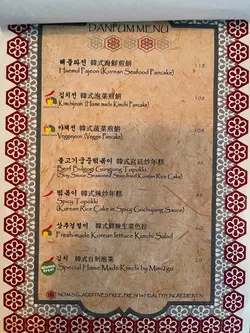 DANPUM MENU
해물파전 韓式海鮮煎餅
Haemul Pajeon (Korean Seafood Pancake)
김치전 韓式泡菜煎餅
Kimchijeon (Home made Kimchi Pancake)
야채전 韓式蔬菜煎餅
Veggiejeon (Veggie Pancake)
불고기궁중떡볶이 韓式宮廷炒年糕
Beef Bulgogi Gungjung Topokki
(Soy Sauce Seasoned Korean Rice Cake)
떡볶이 韓式辣炒年糕
Spicy Topokki
(Korean Rice Cake in Spicy Gochujang Sauce)
상추겉절이
Fresh-made Korean lettuce Kimchi Salad
김치 韓式自制泡菜
Special Home Made Kimchi by
NO MSG, ADDITIVES FREE, FRESH & HEALTHY INGREDIENTS